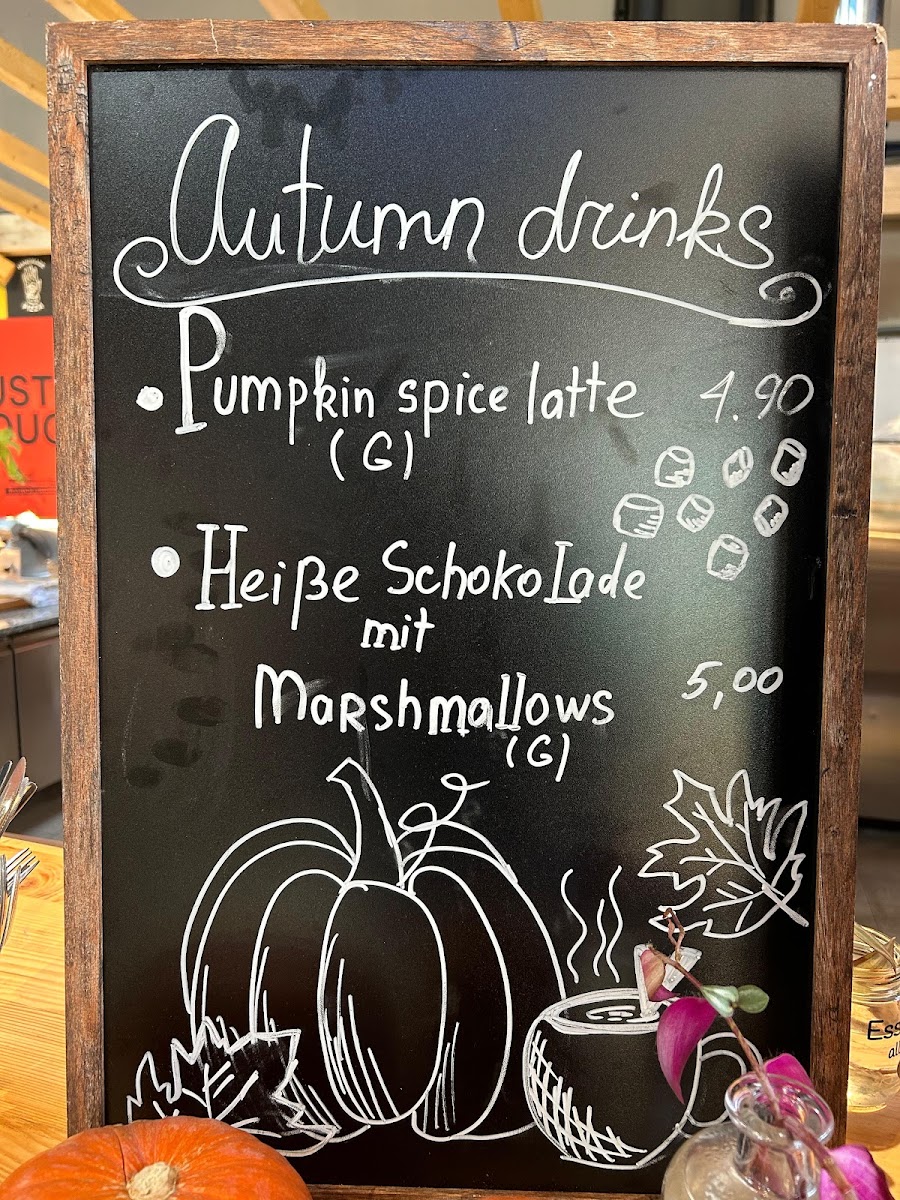 Autumn drinks
• Pumpkin spice latte 4.90
(G)
• Heiße Schokolade
mit
Marshmallows 5,00
(G)
UST
OUG
Ess
al